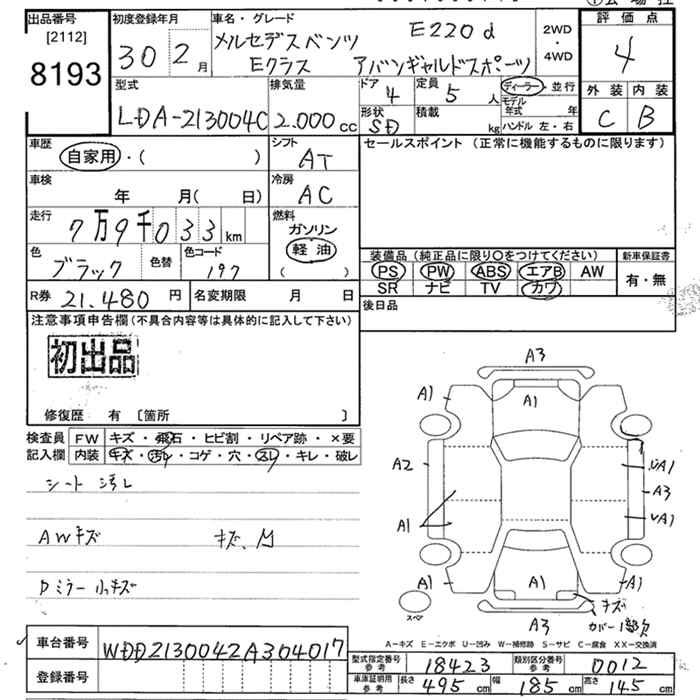 出品番号
[2112]
8193
初度登録年月
30 2月
車名・グレード
メルセデスベンツ E220d
Eクラス アバンギャルドスポーツ
2WD
・
4WD
評価点
4
外装 内装
C B
型式
LDA-213004C
排気量
2.000cc
ドア
4
定員
5 人
形状
SD
積載
kg
ディーラー・並行
モデル年式 年
ハンドル 左・右
車歴
自家用・( )
シフト
AT
車検
年 月( 日)
冷房
AC
走行
7万9千033km
燃料
ガソリン
軽油
( )
色
ブラック
色替
色コード
197
R券 21.480円
名変期限 月 日
セールスポイント (正常に機能するものに限ります)
装備品(純正品に限り〇をつけてください)
新車保証書
PS PW ABS エアB AW
SR ナビ TV カワ
有・無
後日品
注意事項申告欄(不具合内容等は具体的に記入して下さい)
初出品
修復歴 有 〔箇所 〕
検査員
記入欄
FW キズ・飛石・ヒビ割・リペア跡・×要
内装 キズ・汚レ・コゲ・穴・スレ・キレ・破レ
シート汚レ
AWキズ
キズ、
Dミラー小キズ
A3
A1
A1
A1
A2
UA1
A3
UA1
A1
A1
A1
A1
キズ
カバー1部欠
A3
スペア
A-キズ E-エクボ U-凹み W-補修跡 S-サビ C-腐食 XX-交換済
車台番号 WDD2130042A304017
登録番号
型式指定番号
参考
18423
類別区分番号
参考
0012
車庫証明用
参考
長さ 495cm 幅 185cm 高さ 145cm